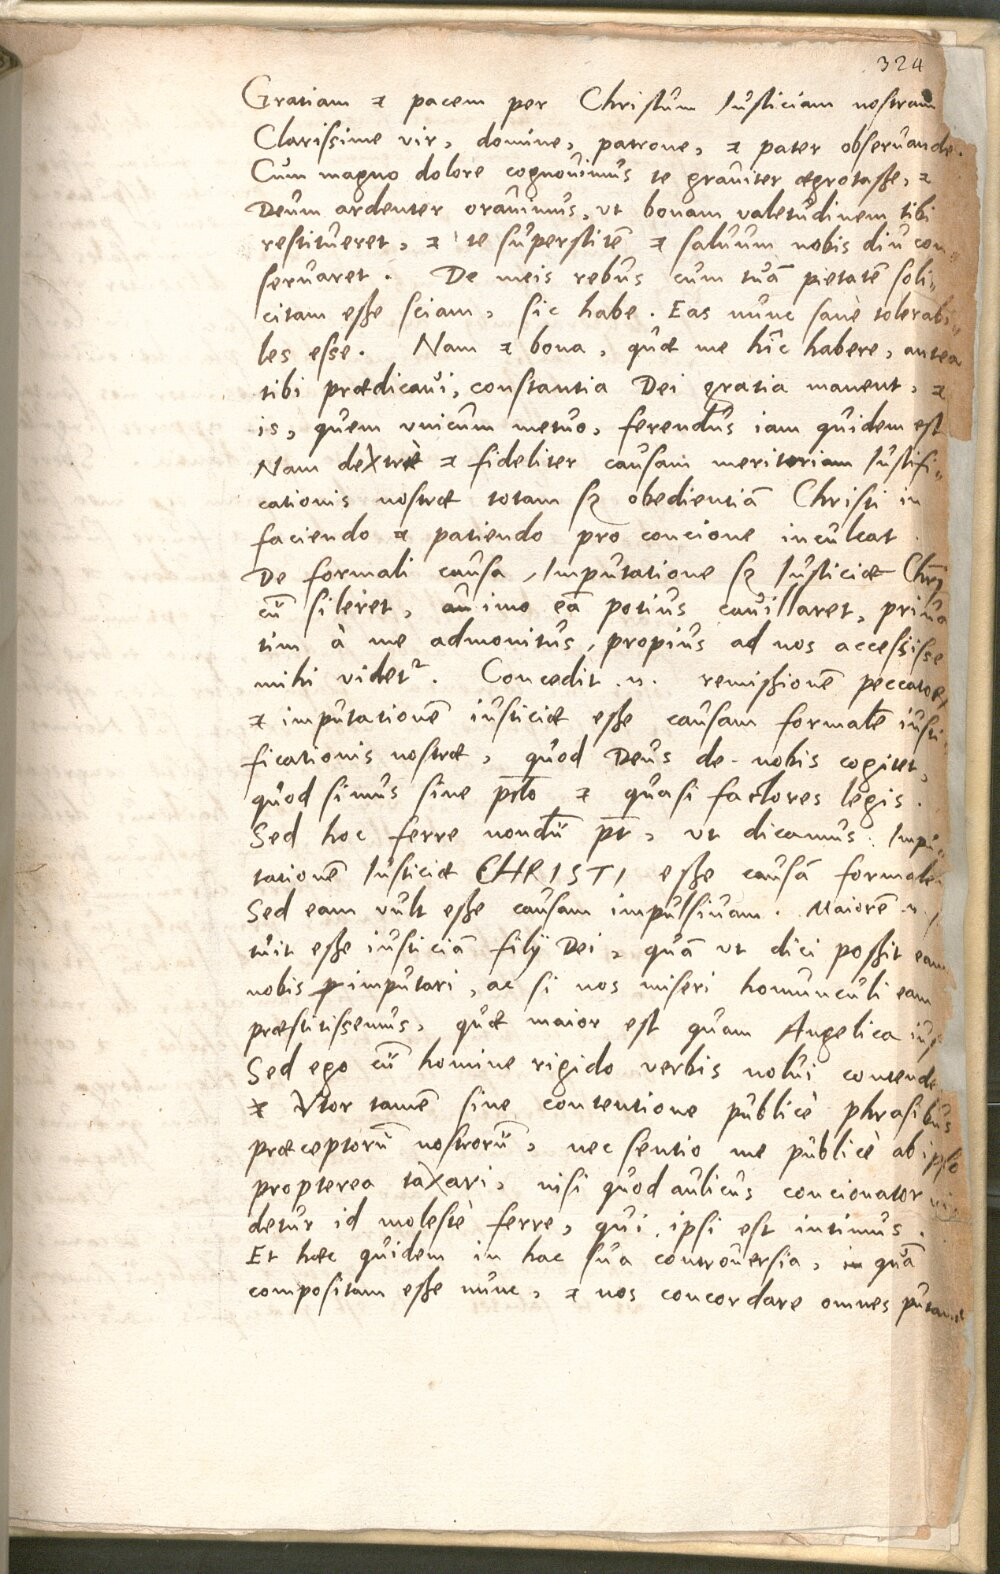 324
Gratiam & pacem per Christum Iusticiam nostram
Clarissime vir, domine, patrone, & pater obseruande.
Cum magno dolore cognouimus te grauiter ægrotasse, &
Deum ardenter orauimus, vt bonam valetudinem tibi
restitueret, & te superstitē & saluum nobis diu con„
seruaret. De meis rebus cum tuā pietatē soli„
citam esse sciam, sic habe. Eas nunc sanè tolerabi„
les esse. Nam & bona, quæ me hîc habere, antea
tibi prædicaui, constantia Dei gratia manent, &
is, quem vnicum metuo, ferendus iam quidem est
Nam dextrè & fideliter causam meritoriam Iustifi„
cationis nostræ totam sz obedientiā Christi in
faciendo & patiendo pro concione inculcat.
De formali causa, Imputatione sz Iusticiæ Chri
cū sileret, an imo eā potius cauillaret, priua
tim à me admonitus, propius ad nos accessisse
mihi videt². Concedit .n. remissionē peccator
& imputationē iusticiæ esse causam formalē iusti
ficationis nostræ, quod Deus de nobis cogitet,
quod simus sine pctō & quasi factores legis.
Sed hoc ferre nondū pt, vt dicamus. Impu„
tationē Iusticiæ CHRISTI esse causā formale
Sed eam vult esse causam impulsiuam. Maiorē .n.
tuit esse iusticiā filij Dei, quā vt dici possit eam
nobis imputari, ac si nos miseri homunculi eam
præstitissemus, quæ maior est quam Angelica ius
Sed ego cū homine rigido verbis nolui contende
& Vtor tamē sine contentione publicè phrasibus
præceptorū nostrorū, nec sentio me publicè ab ipso
propterea taxari, nisi quod aulicus concionator vi
detur id molestè ferre, qui ipsi est intimus.
Et hæc quidem in hac sua controuersia, quā
compositam esse nunc, & nos concordare omnes putamus